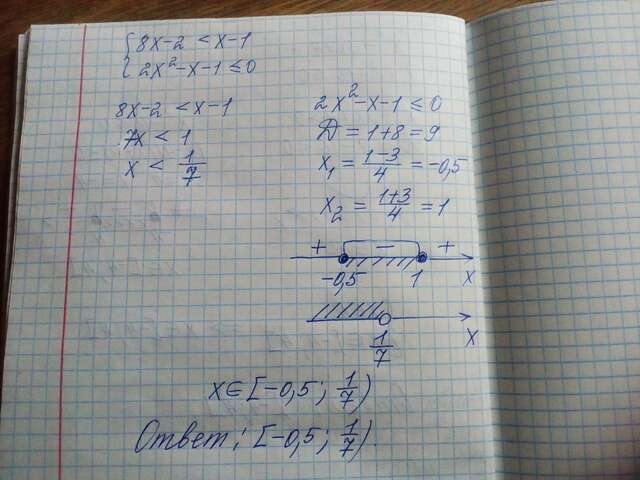 { 8x-2 < x-1
{ 2x²-x-1 ≤ 0
8x-2 < x-1
7x < 1
x < 1/7
2x²-x-1 ≤ 0
Д = 1+8 = 9
x₁ = (1-3)/4 = -0,5
x₂ = (1+3)/4 = 1
+ - +
-0,5 1 x
1/7 x
x∈[-0,5; 1/7)
Ответ: [-0,5; 1/7).